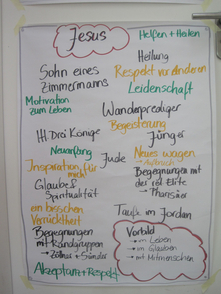 Jesus
Helfen + Heilen
Heilung
Sohn eines
Zimmermanns
Respekt vor Anderen
Leidenschaft
Motivation
zum Leben
Wanderprediger
Begeisterung
Hl Drei Könige
Jünger
Neuanfang
Jude
Neues wagen
→ Aufbruch
Inspiration für
mich
Begegnungen mit
der rel. Elite
→ Pharisäer
Glaube &
Spiritualität
ein bisschen
Verrücktheit
Taufe im Jordan
Begegnungen
mit Randgruppen
→ Zöllner + Sünder
Vorbild
→ im Leben
→ im Glauben
→ mit Mitmenschen
Akzeptanz + Respekt